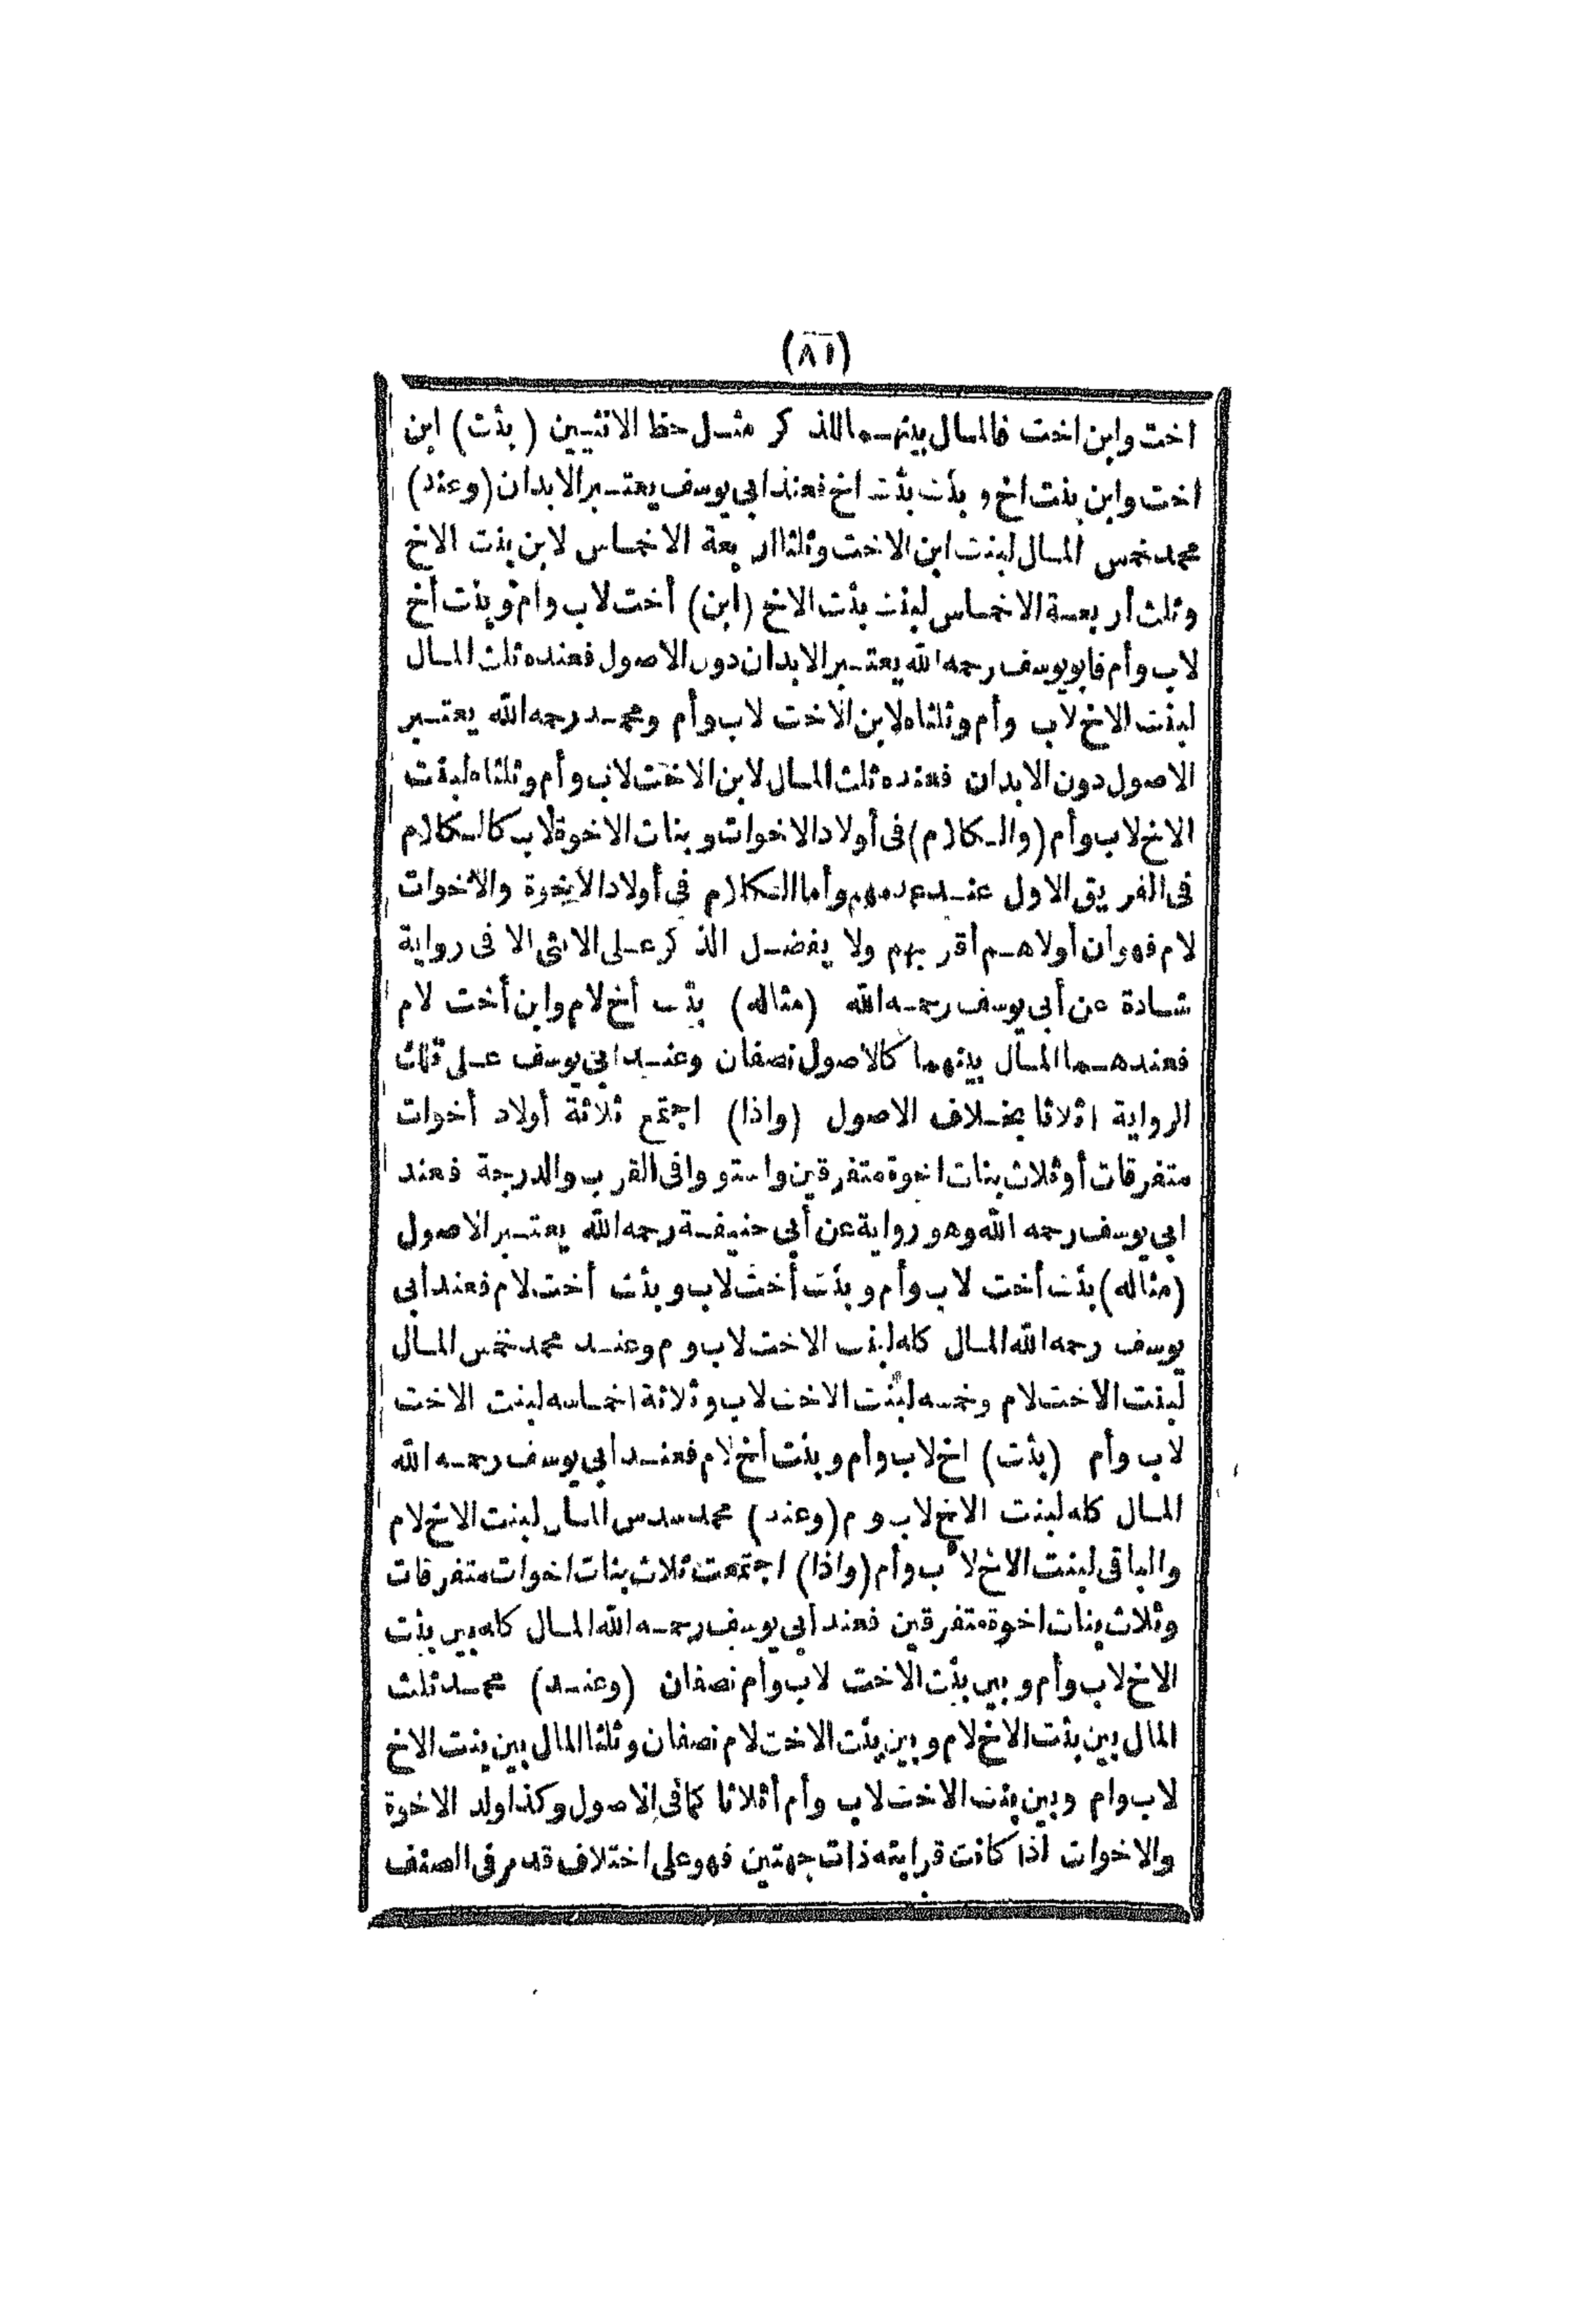 (٨١)
اخت وابن اخت فالمال بينهما للذكر مثل حظ الانثيين (بنت) ابن
اخت وابن بنت اخ وبنت بنت اخ فعند ابي يوسف يعتبر الابدان (وعند)
محمد خمس المال لبنت ابن الاخت وثلثا اربعة الاخماس لابن بنت الاخ
وثلث أربعة الاخماس لبنت بنت الاخ (ابن) أخت لاب وأم وبنت أخ
لاب وأم فابو يوسف رحمه الله يعتبر الابدان دون الاصول فعنده ثلث المال
لبنت الاخ لاب وأم وثلثاه لابن الاخت لاب وأم ومحمد رحمه الله يعتبر
الاصول دون الابدان فعنده ثلث المال لابن الاخت لاب وأم وثلثاه لبنت
الاخ لاب وأم (والكلام) فى أولاد الاخوات وبنات الاخوة لاب كالكلام
فى الفريق الاول عند عدمهم وأما الكلام فى أولاد الاخوة والاخوات
لام فهو ان أولاهم أقربهم ولا يفضل الذكر على الانثى الا فى رواية
شادة عن أبى يوسف رحمه الله (مثاله) بنت أخ لام وابن أخت لام
فعندهما المال بينهما كالاصول نصفان وعند ابى يوسف على تلك
الرواية اثلاثا بخلاف الاصول (واذا) اجتمع ثلاثة أولاد أخوات
متفرقات أو ثلاث بنات اخوة متفرقين واستووا فى القرب والدرجة فعند
ابى يوسف رحمه الله وهو رواية عن أبى حنيفة رحمه الله يعتبر الاصول
(مثاله) بنت أخت لاب وأم وبنت أخت لاب وبنت أخت لام فعند أبى
يوسف رحمه الله المال كله لبنت الاخت لاب و م وعند محمد خمس المال
لبنت الاخت لام وخمسه لبنت الاخت لاب وثلاثة اخماسه لبنت الاخت
لاب وأم (بنت) اخ لاب وأم وبنت أخ لام فعند أبى يوسف رحمه الله
المال كله لبنت الاخ لاب و م (وعند) محمد سدس المال لبنت الاخ لام
والباقى لبنت الاخ لاب وأم (واذا) اجتمعت ثلاث بنات اخوات متفرقات
وثلاث بنات اخوة متفرقين فعند أبى يوسف رحمه الله المال كله بين بنت
الاخ لاب وأم وبين بنت الاخت لاب وأم نصفان (وعند) محمد ثلث
المال بين بنت الاخ لام وبين بنت الاخت لام نصفان وثلثا المال بين بنت الاخ
لاب وام وبين بنت الاخت لاب وأم أثلاثا كما فى الاصول وكذا ولد الاخوة
والاخوات اذا كانت قرابته ذات جهتين فهو على اختلاف قد مر فى الصنف